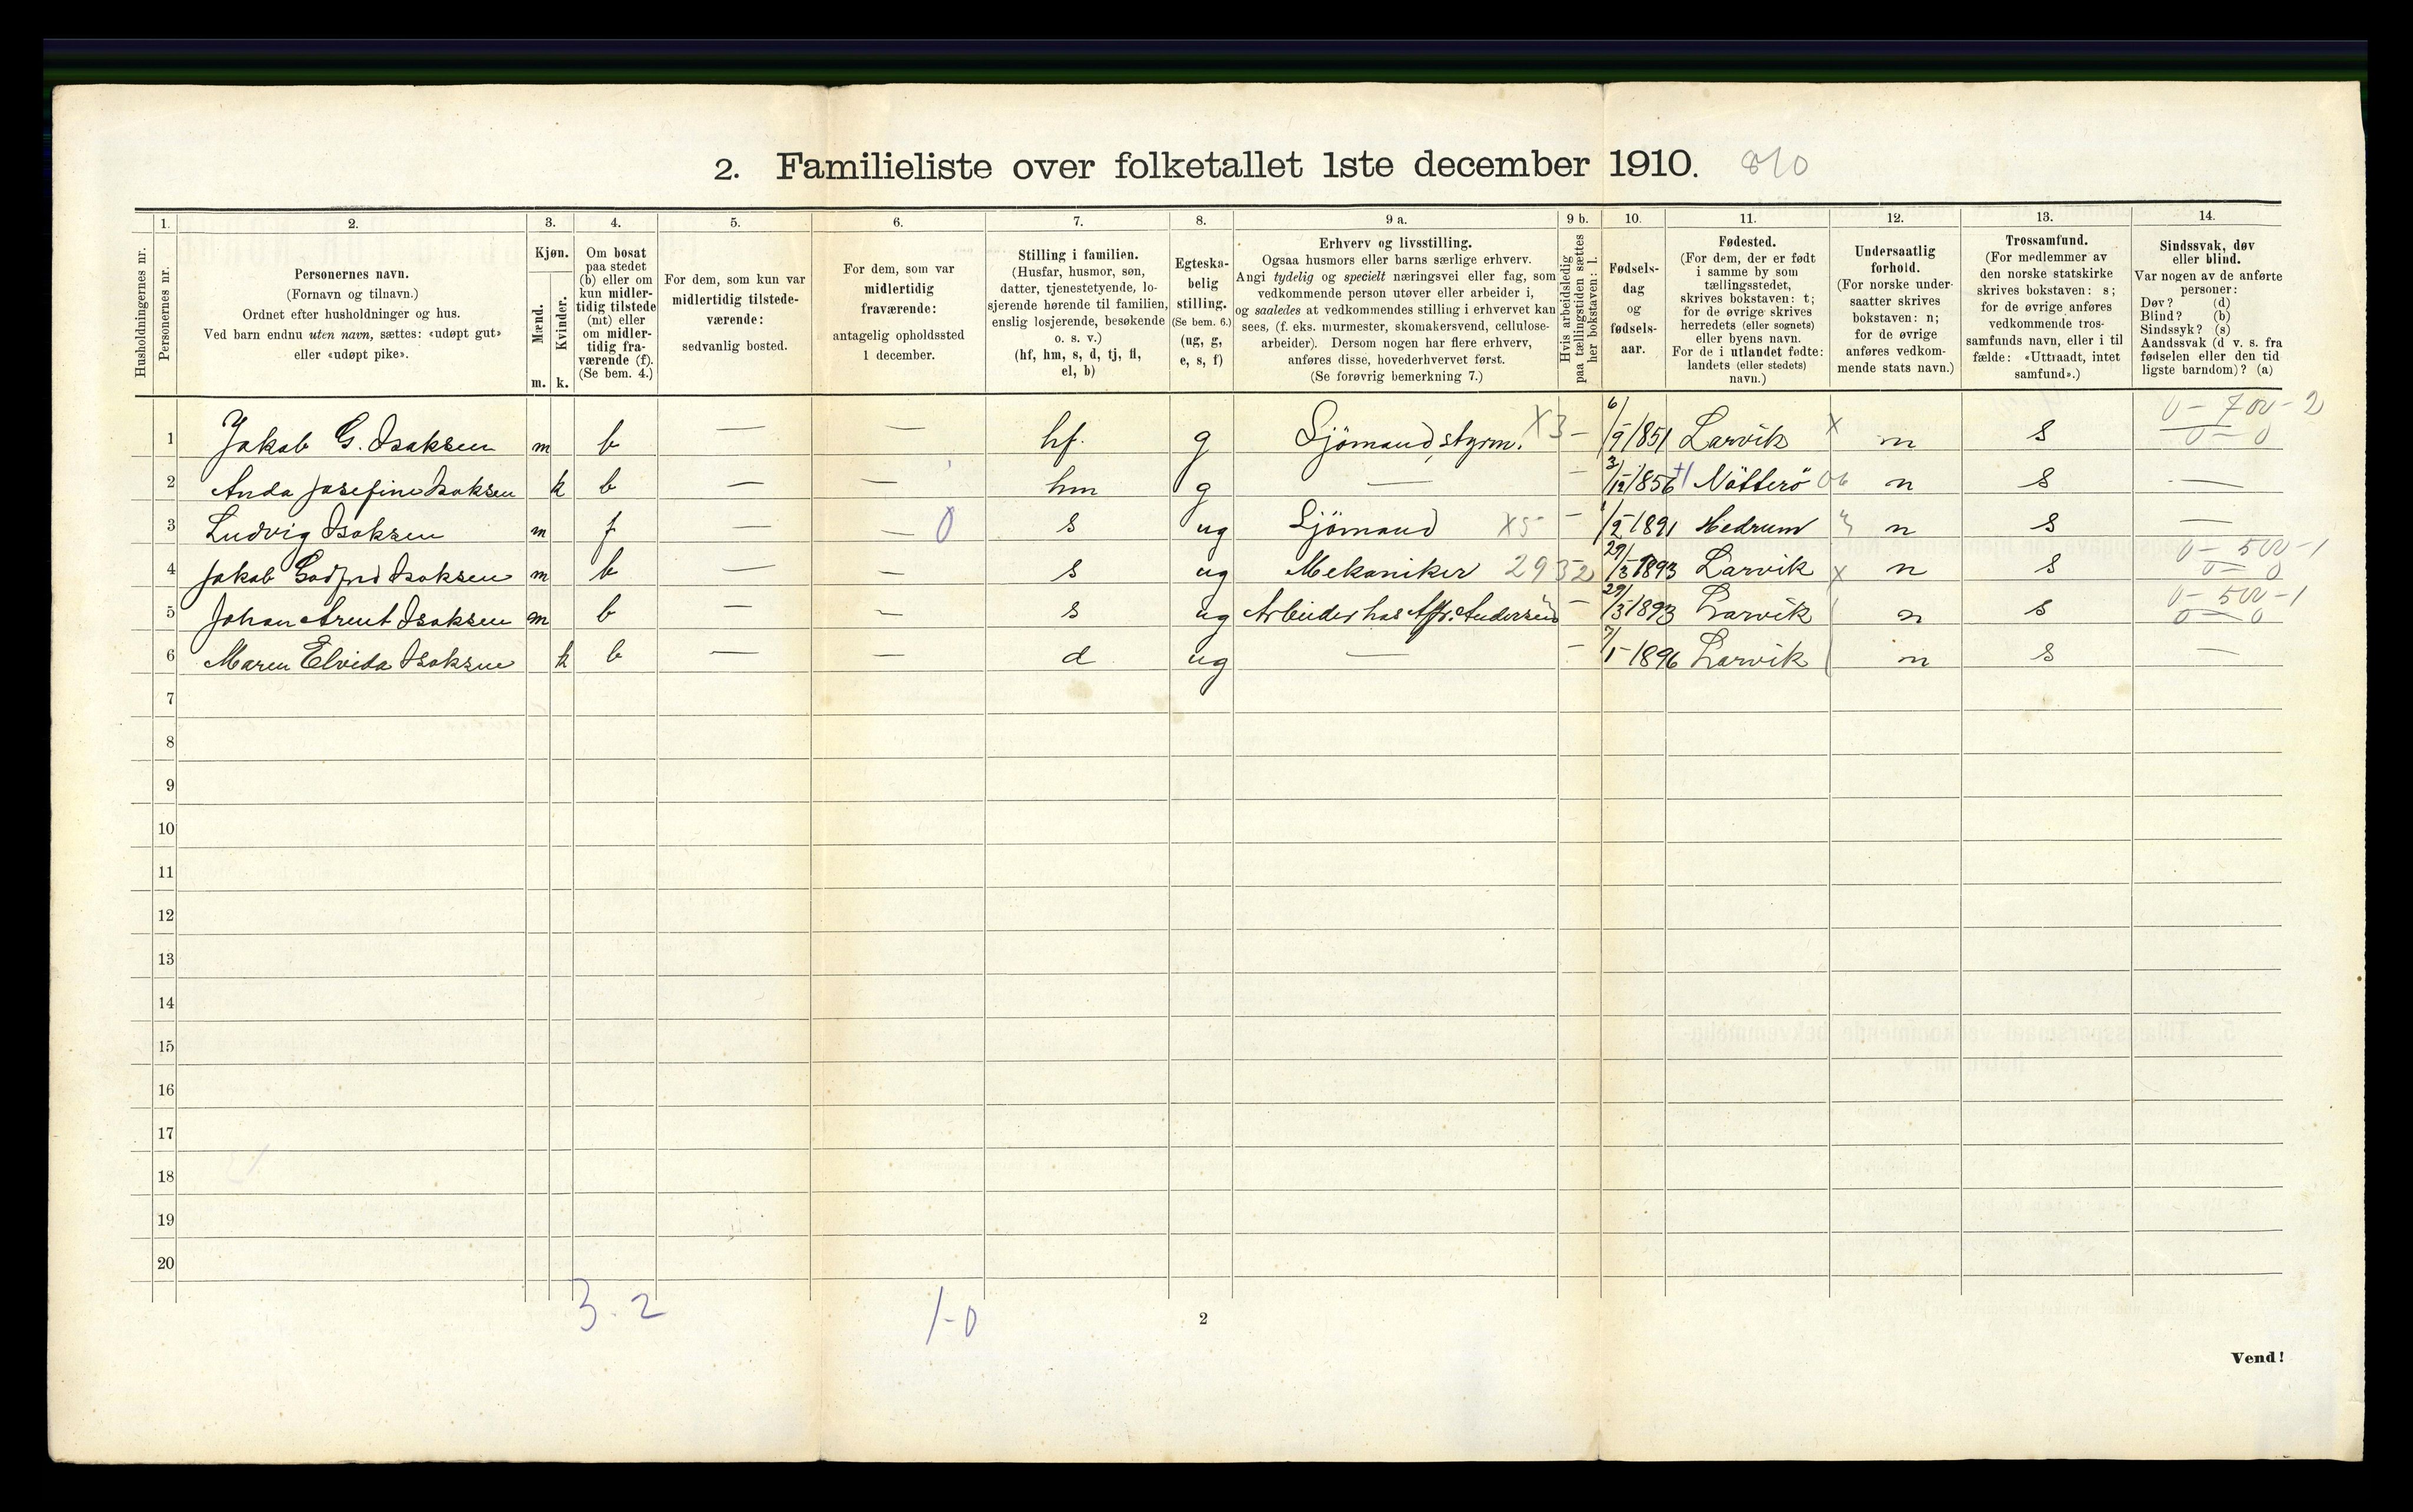 2. Familieliste over folketallet 1ste december 1910. 810
1. 2. 3. 4. 5. 6. 7. 8. 9 a. 9 b. 10. 11. 12. 13. 14.
Husholdningernes nr.
Personernes nr.
Personernes navn.
(Fornavn og tilnavn.)
Ordnet efter husholdninger og hus.
Ved barn endnu uten navn, sættes: «udøpt gut»
eller «udøpt pike».
Kjøn.
Mænd.
Kvinder.
m. k.
Om bosat
paa stedet
(b) eller om
kun midler-
tidig tilstede
(mt) eller
om midler-
tidig fra-
værende (f).
(Se bem. 4.)
For dem, som kun var
midlertidig tilstede-
værende:
sedvanlig bosted.
For dem, som var
midlertidig
fraværende:
antagelig opholdssted
1 december.
Stilling i familien.
(Husfar, husmor, søn,
datter, tjenestetyende, lo-
sjerende hørende til familien,
enslig losjerende, besøkende
o. s. v.)
(hf, hm, s, d, tj, fl,
el, b)
Egteska-
belig
stilling.
(Se bem. 6.)
(ug, g,
e, s, f)
Erhverv og livsstilling.
Ogsaa husmors eller barns særlige erhverv.
Angi tydelig og specielt næringsvei eller fag, som
vedkommende person utøver eller arbeider i,
og saaledes at vedkommendes stilling i erhvervet kan
sees, (f. eks. murmester, skomakersvend, cellulose-
arbeider). Dersom nogen har flere erhverv,
anføres disse, hovederhvervet først.
(Se forøvrig bemerkning 7.)
Hvis arbeidsledig
paa tællingstiden sættes
her bokstaven: l.
Fødsels-
dag
og
fødsels-
aar.
Fødested.
(For dem, der er født
i samme by som
tællingsstedet,
skrives bokstaven: t;
for de øvrige skrives
herredets (eller sognets)
eller byens navn.
For de i utlandet fødte:
landets (eller stedets)
navn.)
Undersaatlig
forhold.
(For norske under-
saatter skrives
bokstaven: n;
for de øvrige
anføres vedkom-
mende stats navn.)
Trossamfund.
(For medlemmer av
den norske statskirke
skrives bokstaven: s;
for de øvrige anføres
vedkommende tros-
samfunds navn, eller i til
fælde: «Uttraadt, intet
samfund».)
Sindssvak, døv
eller blind.
Var nogen av de anførte
personer:
Døv? (d)
Blind? (b)
Sindssyk? (s)
Aandssvak (d v. s. fra
fødselen eller den tid
ligste barndom)? (a)
1 Jakob G. Isaksen m b — — hf. g Sjömand, styrm. X3 — 6/9 1851 Larvik X n s 0 - 700 - 2
0 — 0
2 Anda Josefine Isaksen k b — — hm g — — 3/12 1856 Nötterö 06 n s —
3 Ludvig Isaksen m f — — 0 s ug Sjömand X5 — 1/2 1891 Hedrum n s —
4 Jakob Godfred Isaksen m b — — s ug Mekaniker 2932 29/3 1893 Larvik X n s 0 - 500 - 1
0 — 0
5 Johan Arent Isaksen m b — — s ug Arbeider hos Andersen — 29/3 1893 Larvik n s 0 - 500 - 1
0 — 0
6 Maren Elvida Isaksen k b — — d ug — — 7/1 1896 Larvik n s —
7
8
9
10
11
12
13
14
15
16
17
18
19
20
3 - 2 1 - 0
2
Vend!